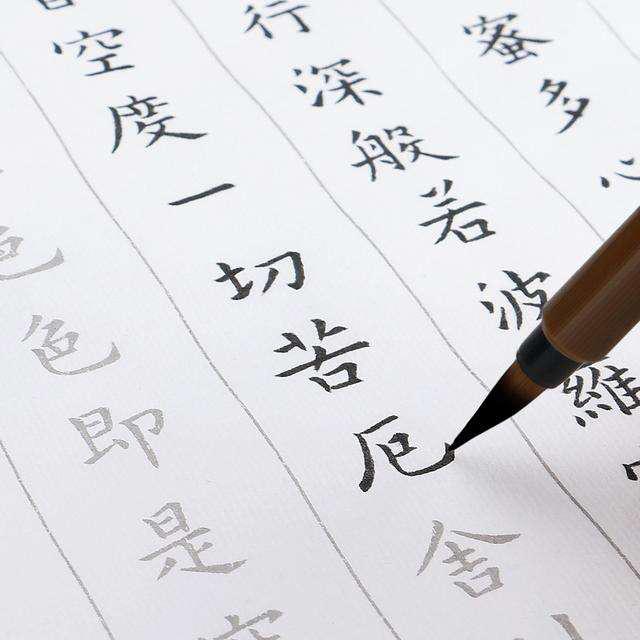 蜜多心
行深般若波
空度一切苦厄舍
色色即是空